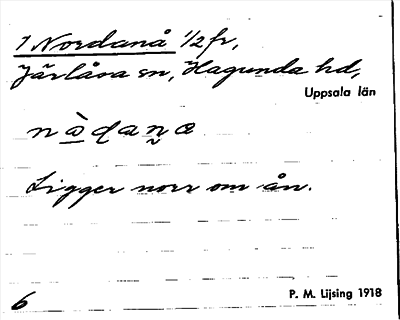 1 Nordanå 1/2 fr,
Järlåsa sn, Hagunda hd,
Uppsala län
nòdanα
Ligger norr om ån.
6
P. M. Lijsing 1918